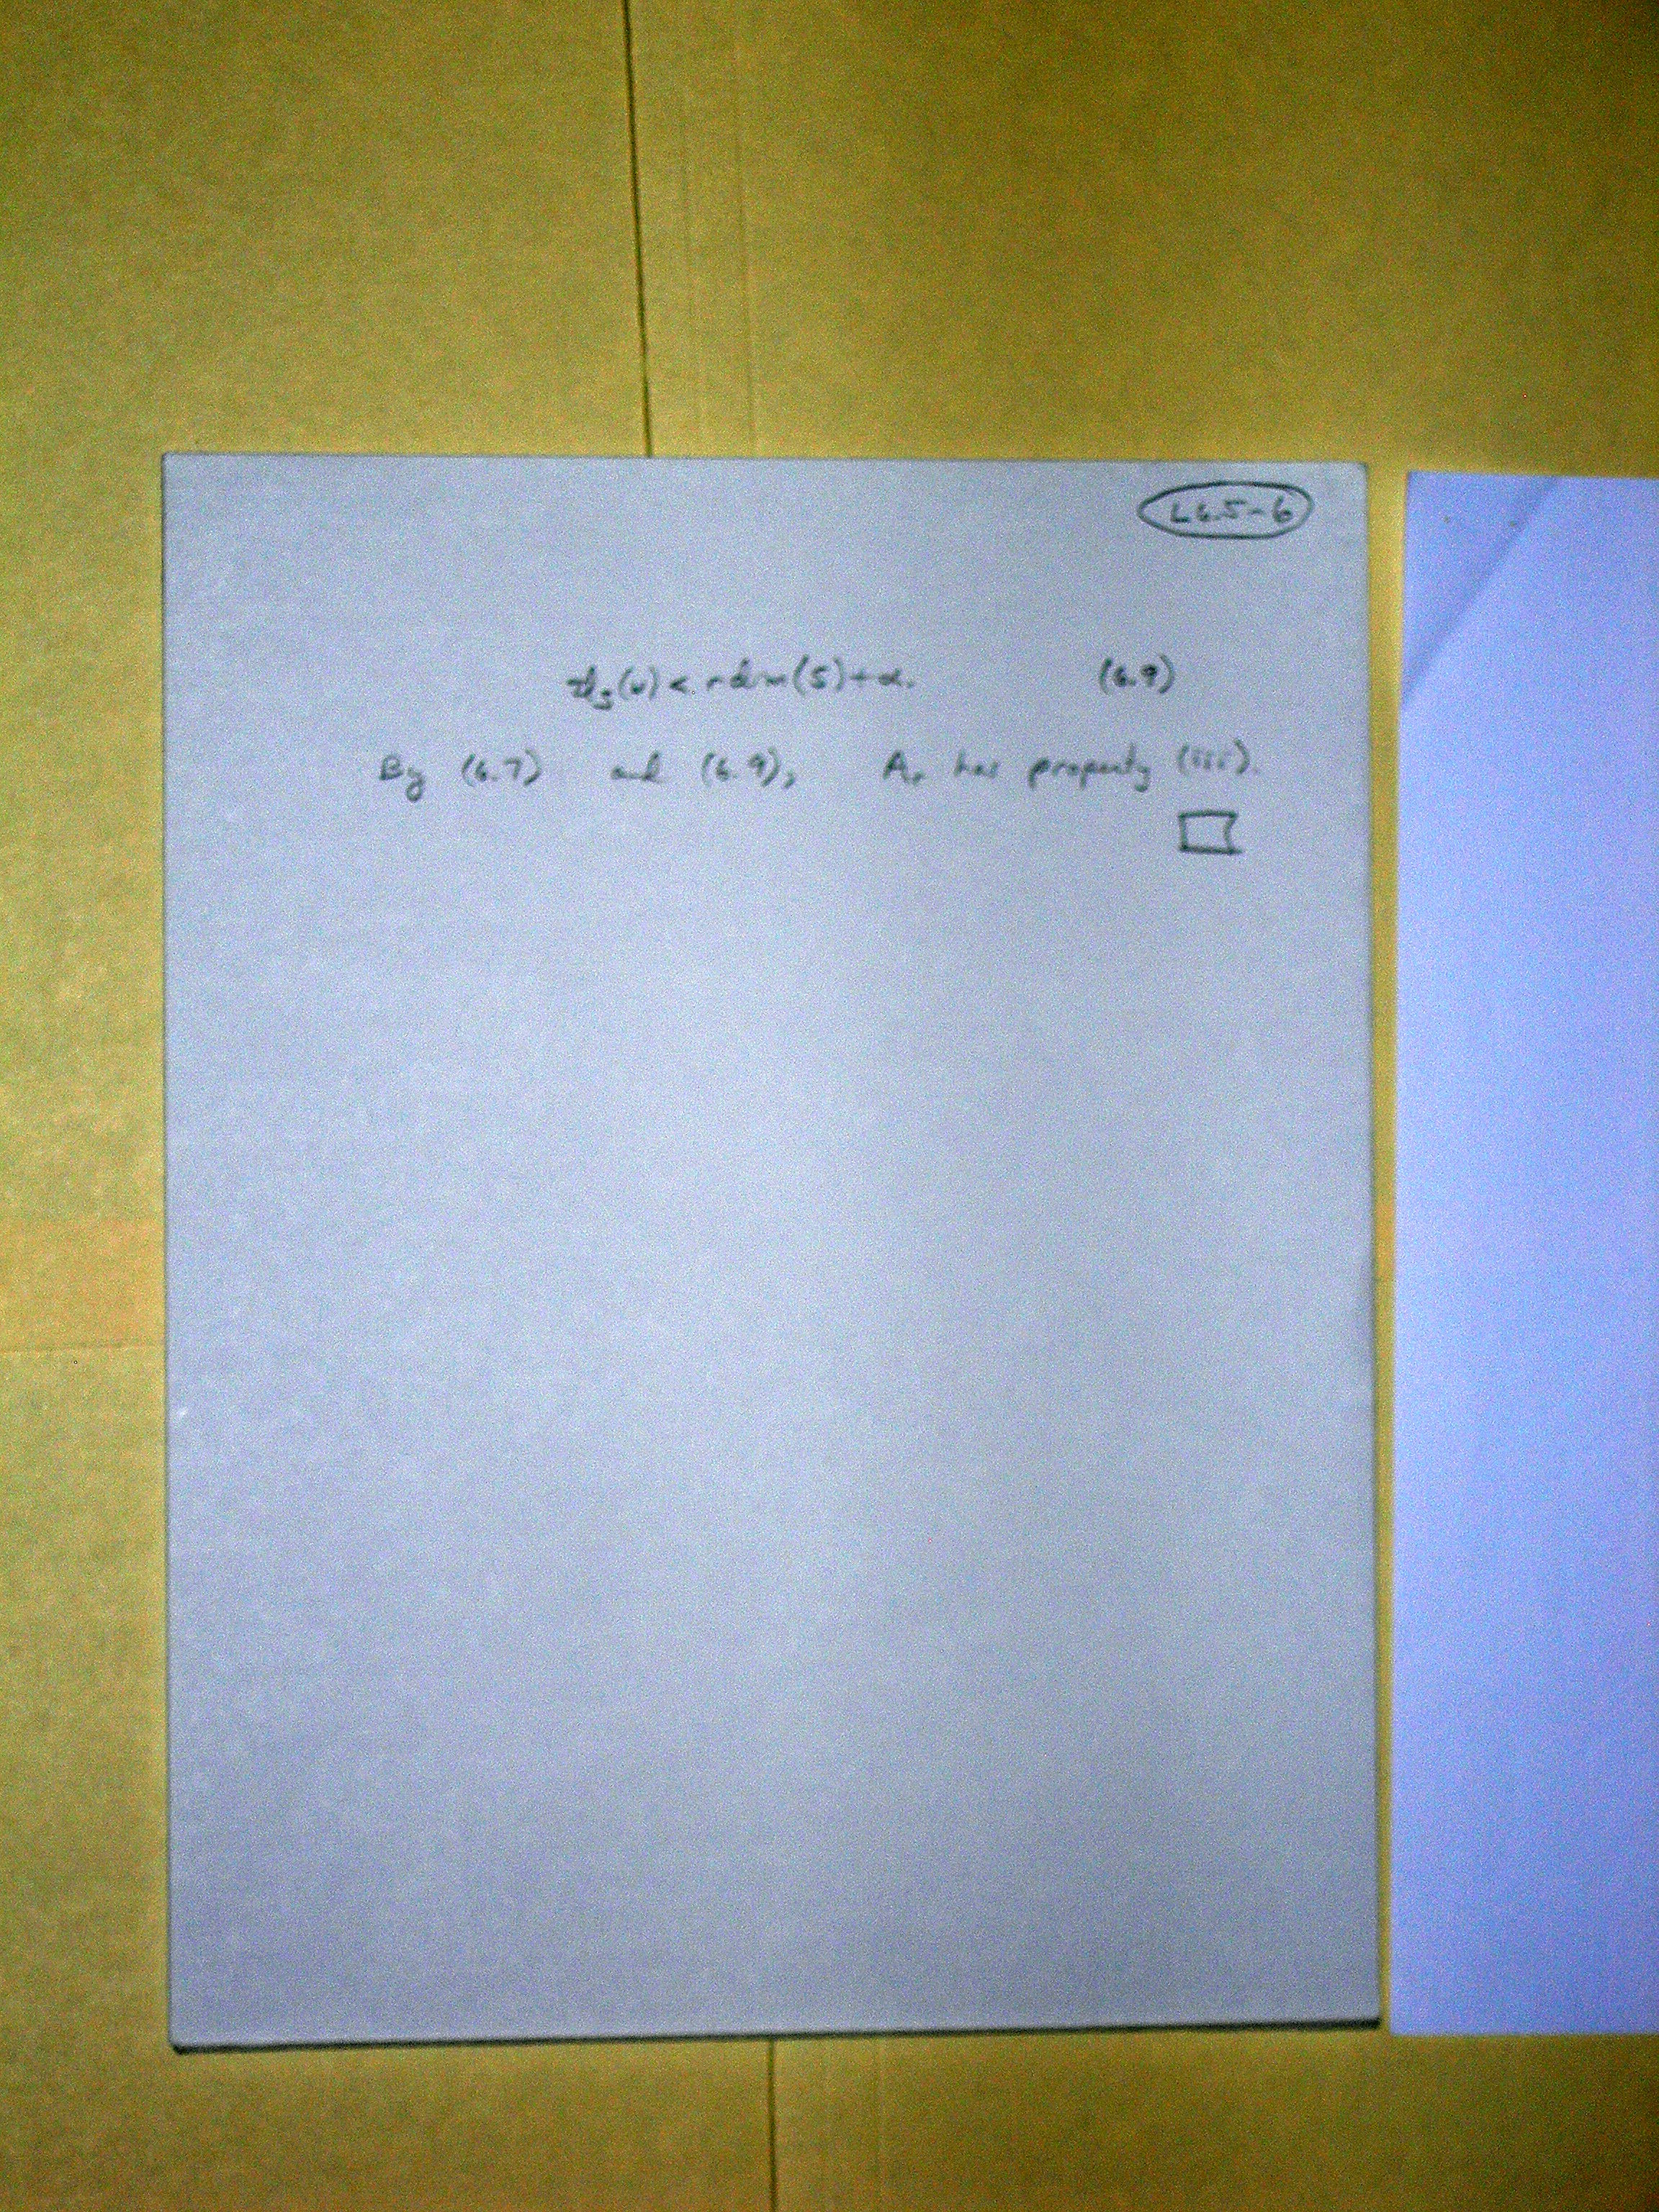 L6.5-6
zl_S(w) < rdim(S)+α. (6.9)
By (6.7) and (6.9), A_r has property (iii).
□